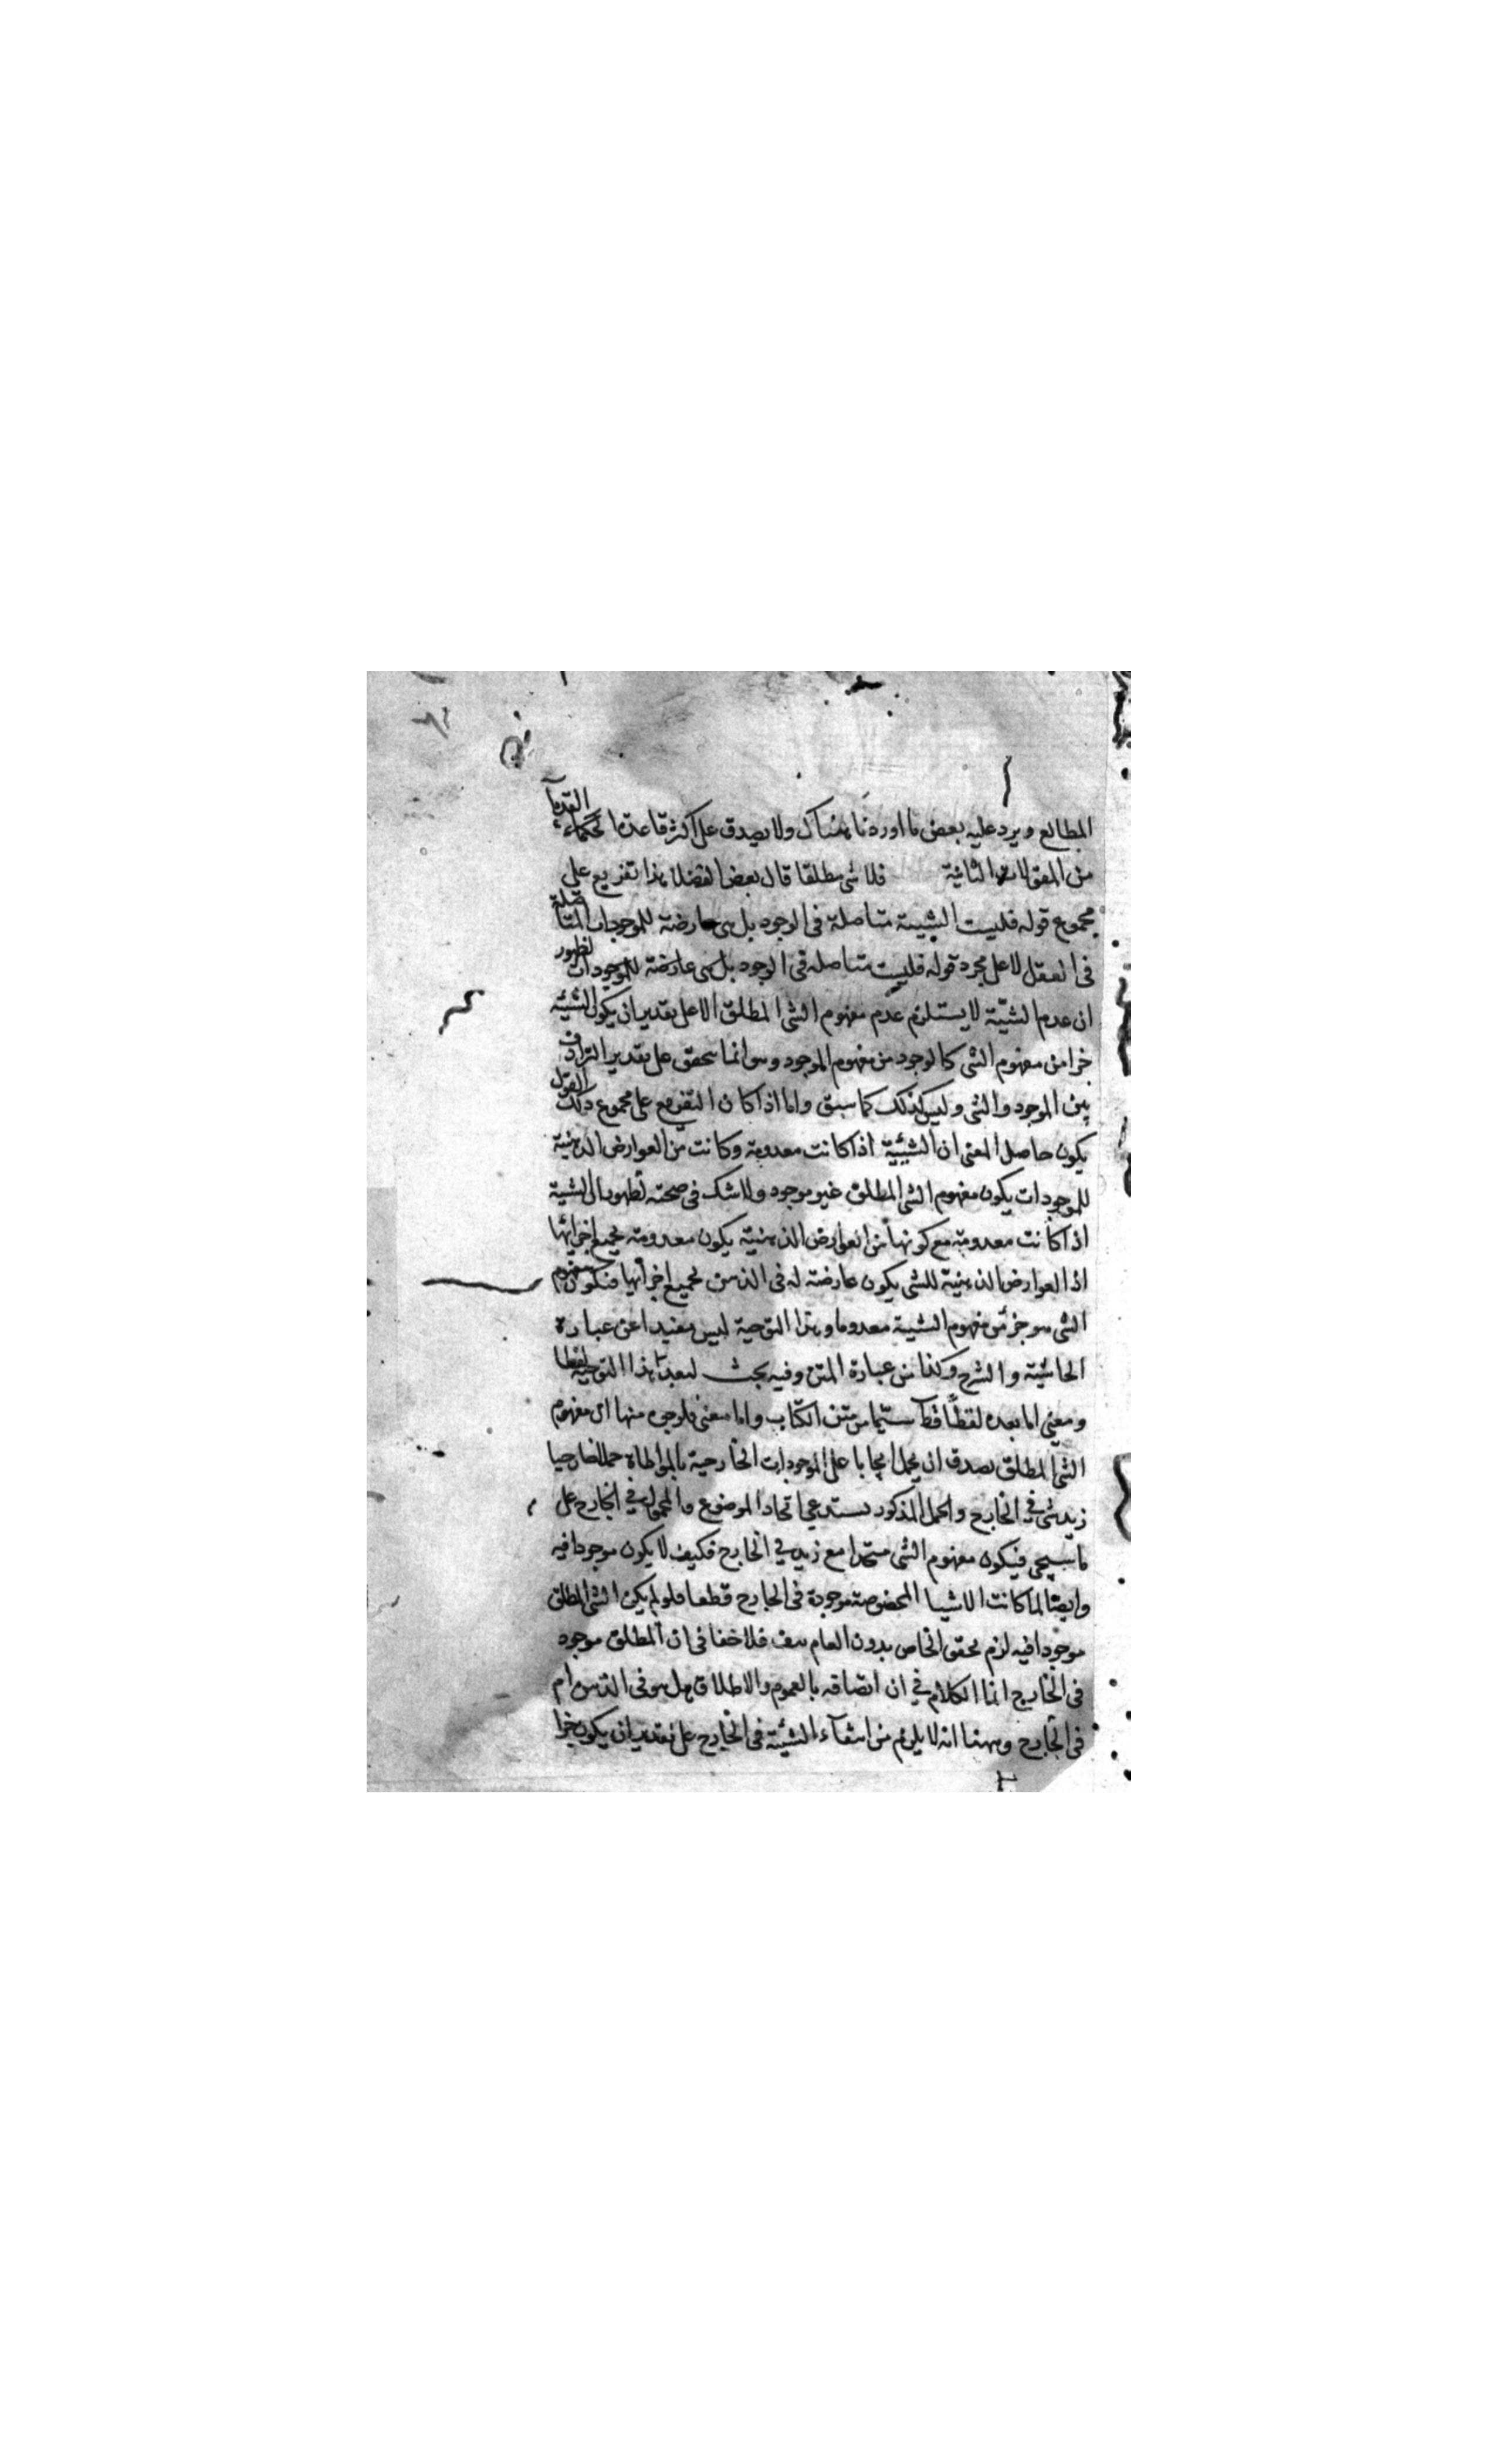 المطالع ويرد عليه بعض ما اوردنا هناك ولا يصدق على اكثر قاعدة الحكماء القدماء
من المعقولات الثانية فلا شئ مطلقا قال بعض الفضلا هذا تفريع على
مجموع قوله فليست الشيئية متاصلة فى الوجود بل هى عارضة للموجودات المتاصلة
فى العقل لا على مجرد قوله فليست متاصله فى الوجود بل هى عارضة للموجودات لظهور
ان عدم الشيئية لا يستلزم عدم مفهوم الشئ المطلق الا على تقدير ان يكون الشيئية
جزا من مفهوم الشئ كالوجود من مفهوم الموجود وهو انما يتحقق على تقدير الترادف
بين الموجود والشئ وليس كذلك كما سبق واما اذا كان التفريع على مجموع ذلك القول
يكون حاصل المعنى ان الشيئية اذا كانت معدومة وكانت من العوارض الذهنية
للموجودات يكون مفهوم الشئ المطلق غير موجود ولا شك فى صحته لظهور ان الشيئية
اذا كانت معدومة مع كونها من العوارض الذهنية يكون معدومة بجميع اجزائها
اذ العوارض الذهنية للشئ يكون عارضة له فى الذهن بجميع اجزائها فيكون مفهوم
الشئ هو جزء من مفهوم الشيئية معدوما وهذا التوجيه ليس بعيدا عن عبارة
الحاشية والشرح وكذا من عبارة المتن وفيه بحث لبعد هذا التوجيه لفظا
ومعنى اما بعده لفظا سيما من متن الكتاب واما معنى فلوجوه منها ان مفهوم
الشئ المطلق يصدق ان يحمل ايجابا على الموجودات الخارجية بالمواطاة حملا خارجيا
زيد شئ فى الخارج والحمل المذكور يستدعى اتحاد الموضوع والمحمول فى الخارج على
ما سيجى فيكون مفهوم الشئ متحدا مع زيد فى الخارج فكيف لا يكون موجودا فيه
وايضا لما كانت الاشيا المخصوصة موجودة فى الخارج قطعا فلو لم يكن الشئ المطلق
موجودا فيه لزم تحقق الخاص بدون العام هف فلا خفا فى ان المطلق موجود
فى الخارج انما الكلام فى ان اتصافه بالعموم والاطلاق هل هو فى الذهن ام
فى الخارج ومنها انه لا يلزم من انتفاء الشيئية فى الخارج على تقدير ان يكون جزا